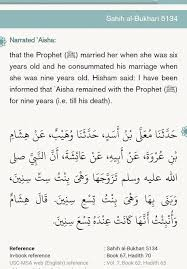 Sahih al-Bukhari 5134
Narrated `Aisha:
that the Prophet (ﷺ) married her when she was six
years old and he consummated his marriage
when she was nine years old. Hisham said: I have been
informed that `Aisha remained with the Prophet (ﷺ)
for nine years (i.e. till his death).
حَدَّثَنَا مُعَلَّى بْنُ أَسَدٍ، حَدَّثَنَا وُهَيْبٌ، عَنْ هِشَامِ
بْنِ عُرْوَةَ، عَنْ أَبِيهِ، عَنْ عَائِشَةَ، أَنَّ النَّبِيَّ صلى
الله عليه وسلم تَزَوَّجَهَا وَهْىَ بِنْتُ سِتِّ سِنِينَ،
وَبَنَى بِهَا وَهْىَ بِنْتُ تِسْعِ سِنِينَ. قَالَ هِشَامٌ
وَأُنْبِئْتُ أَنَّهَا كَانَتْ عِنْدَهُ تِسْعَ سِنِينَ.
Reference : Sahih al-Bukhari 5134
In-book reference : Book 67, Hadith 70
USC-MSA web (English) reference : Vol. 7, Book 62, Hadith 65